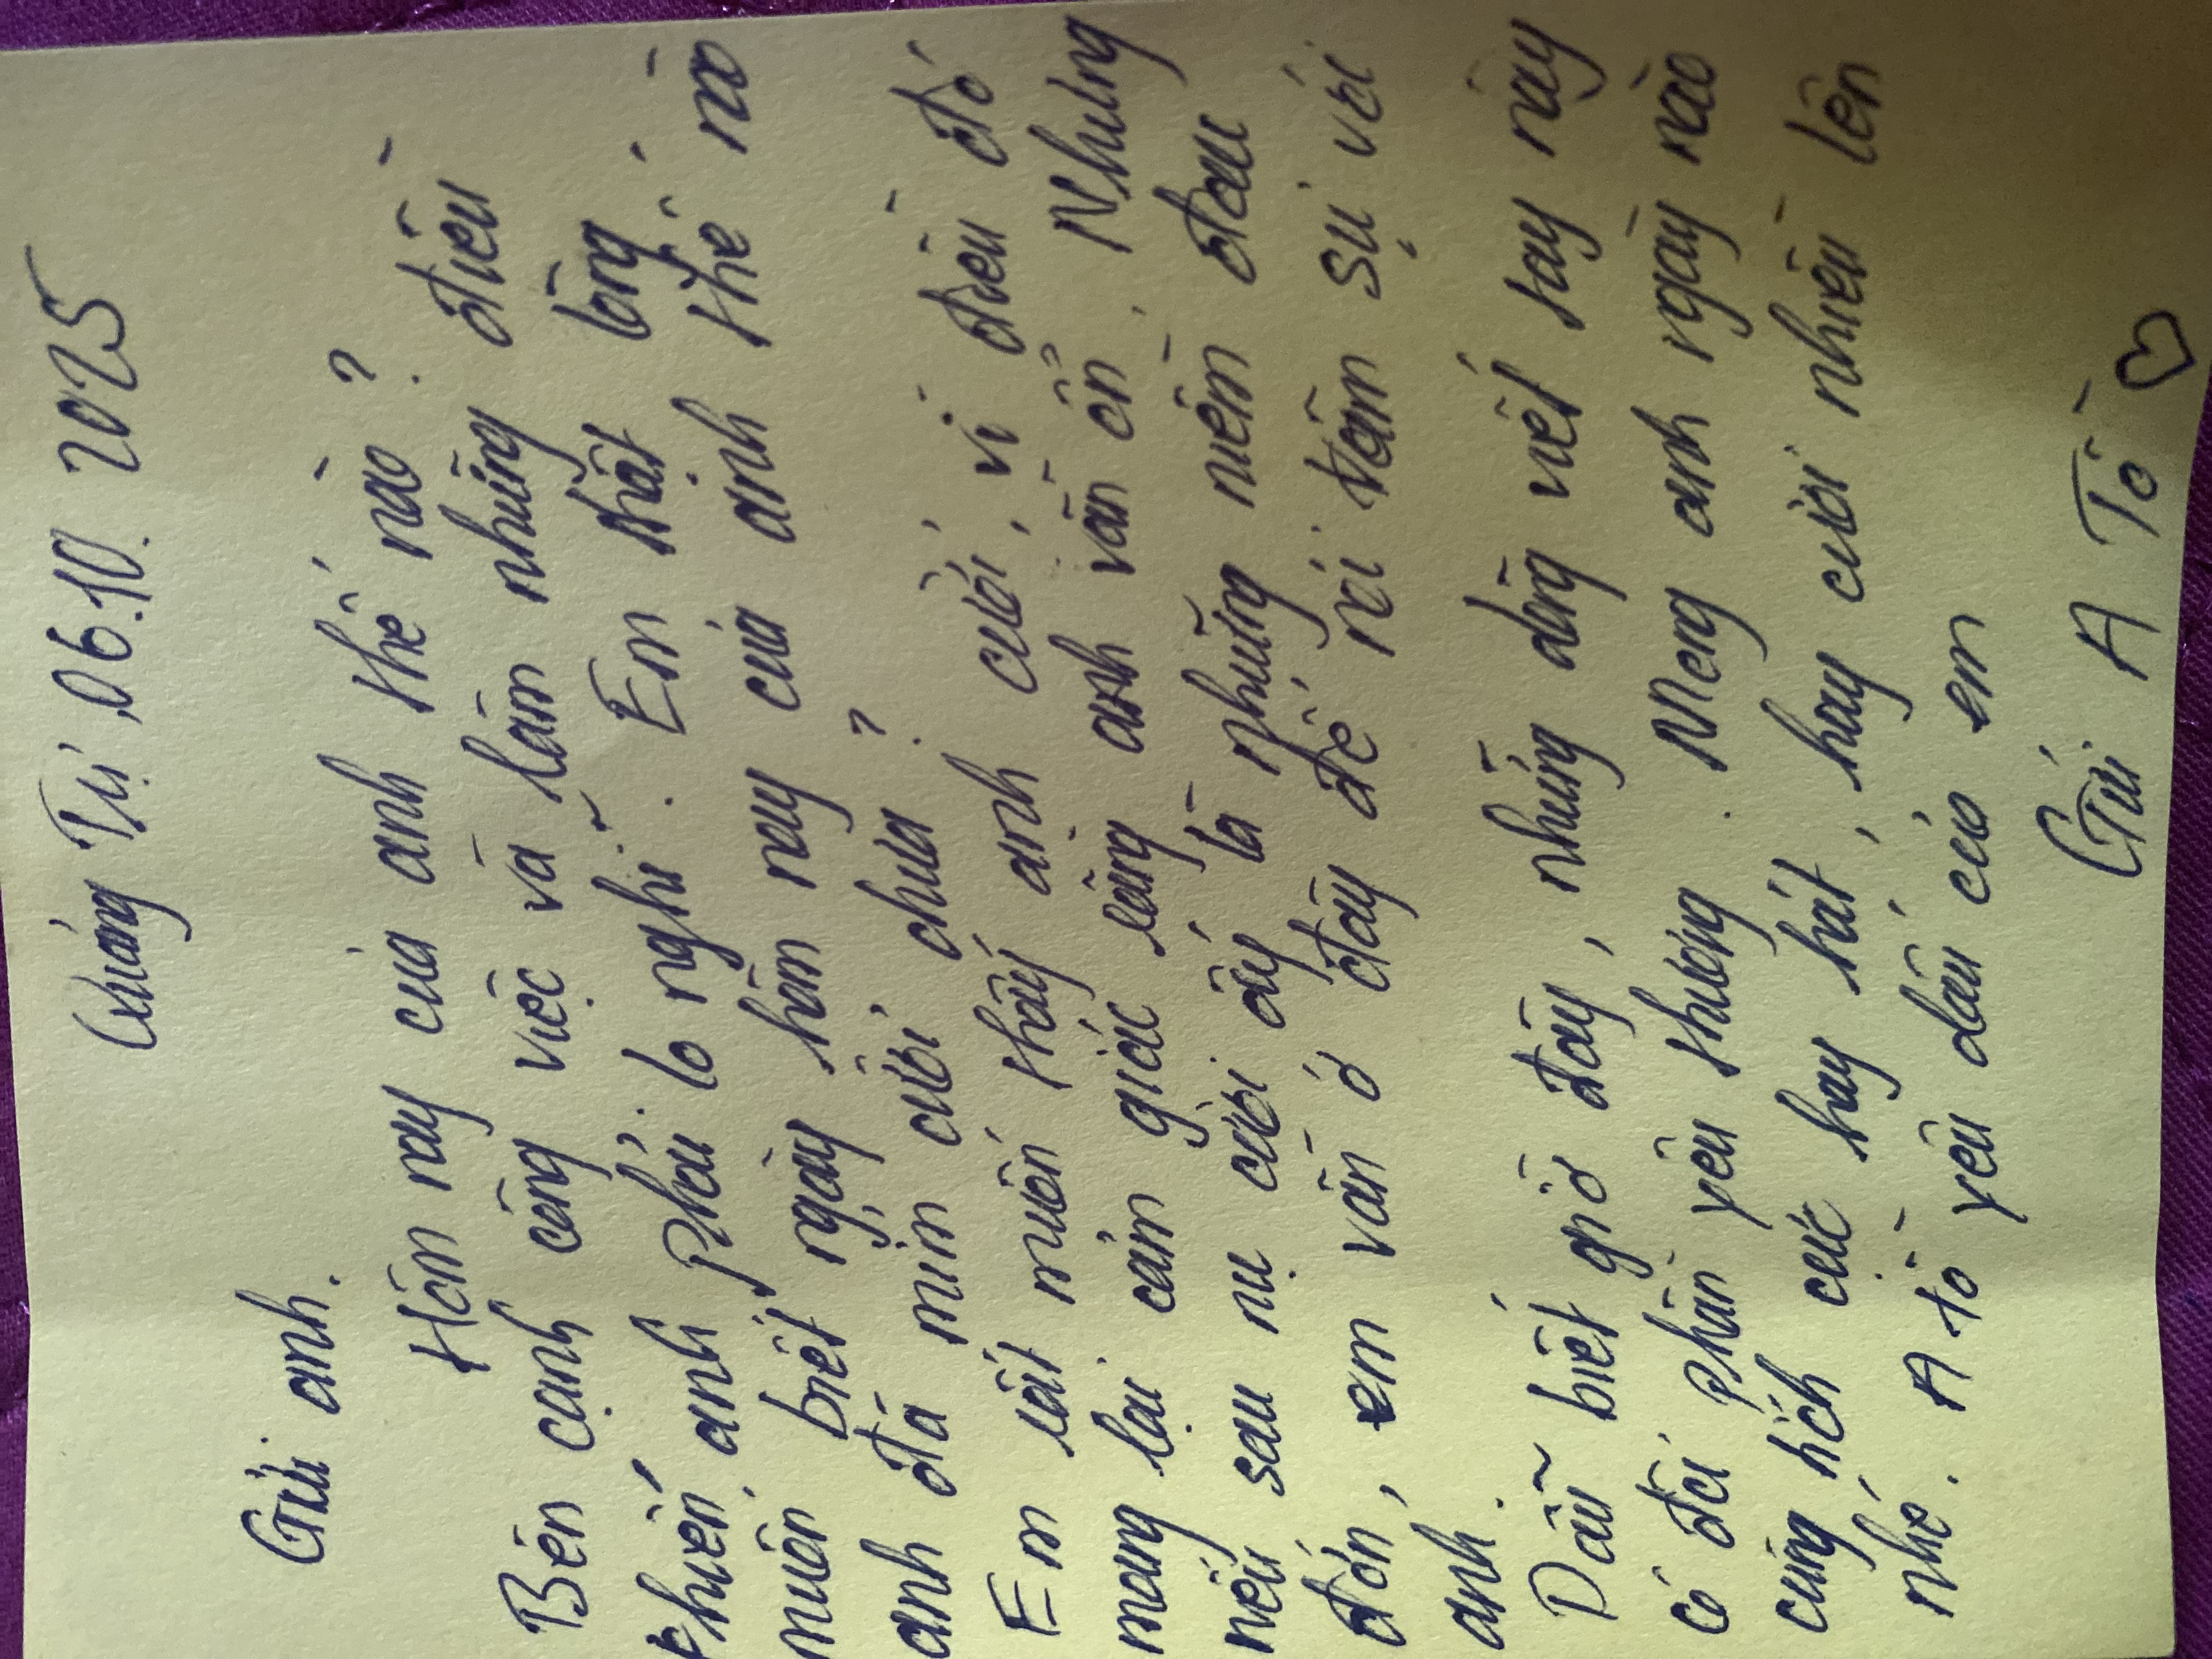 Quảng Trị, 06.10. 2025
Gửi anh.
Hôm nay của anh thế nào ?
Bên cạnh công việc và làm những điều
khiến anh phải lo nghĩ. Em thật lòng
muốn biết ngày hôm nay của anh thế nào
anh đã mỉm cười chưa ?
Em rất muốn thấy anh cười, vì điều đó
mang lại cảm giác rằng anh vẫn ổn. Nhưng
nếu sau nụ cười ấy là những niềm đau
đớn, em vẫn ở đây để nói tâm sự với
anh.
Dẫu biết giờ đây, những dòng viết tay này
có đôi phần yêu thương. Mong anh ngày nào
cũng tích cực hay hát, hay cười nhiều lên
nhé. A Tồ yêu dấu của em
Gửi A Tồ ♡